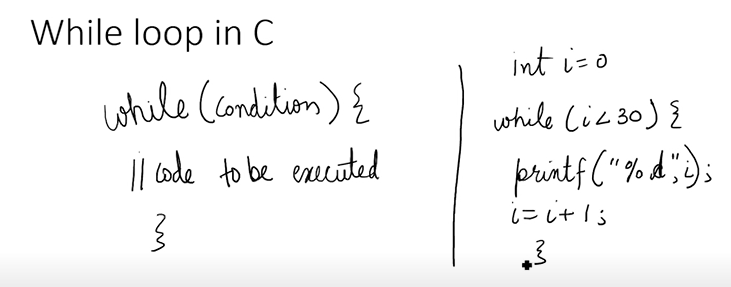 While loop in C
while (condition) {
// code to be executed
}
int i=0
while (i<30) {
printf("%d",i);
i=i+1;
}